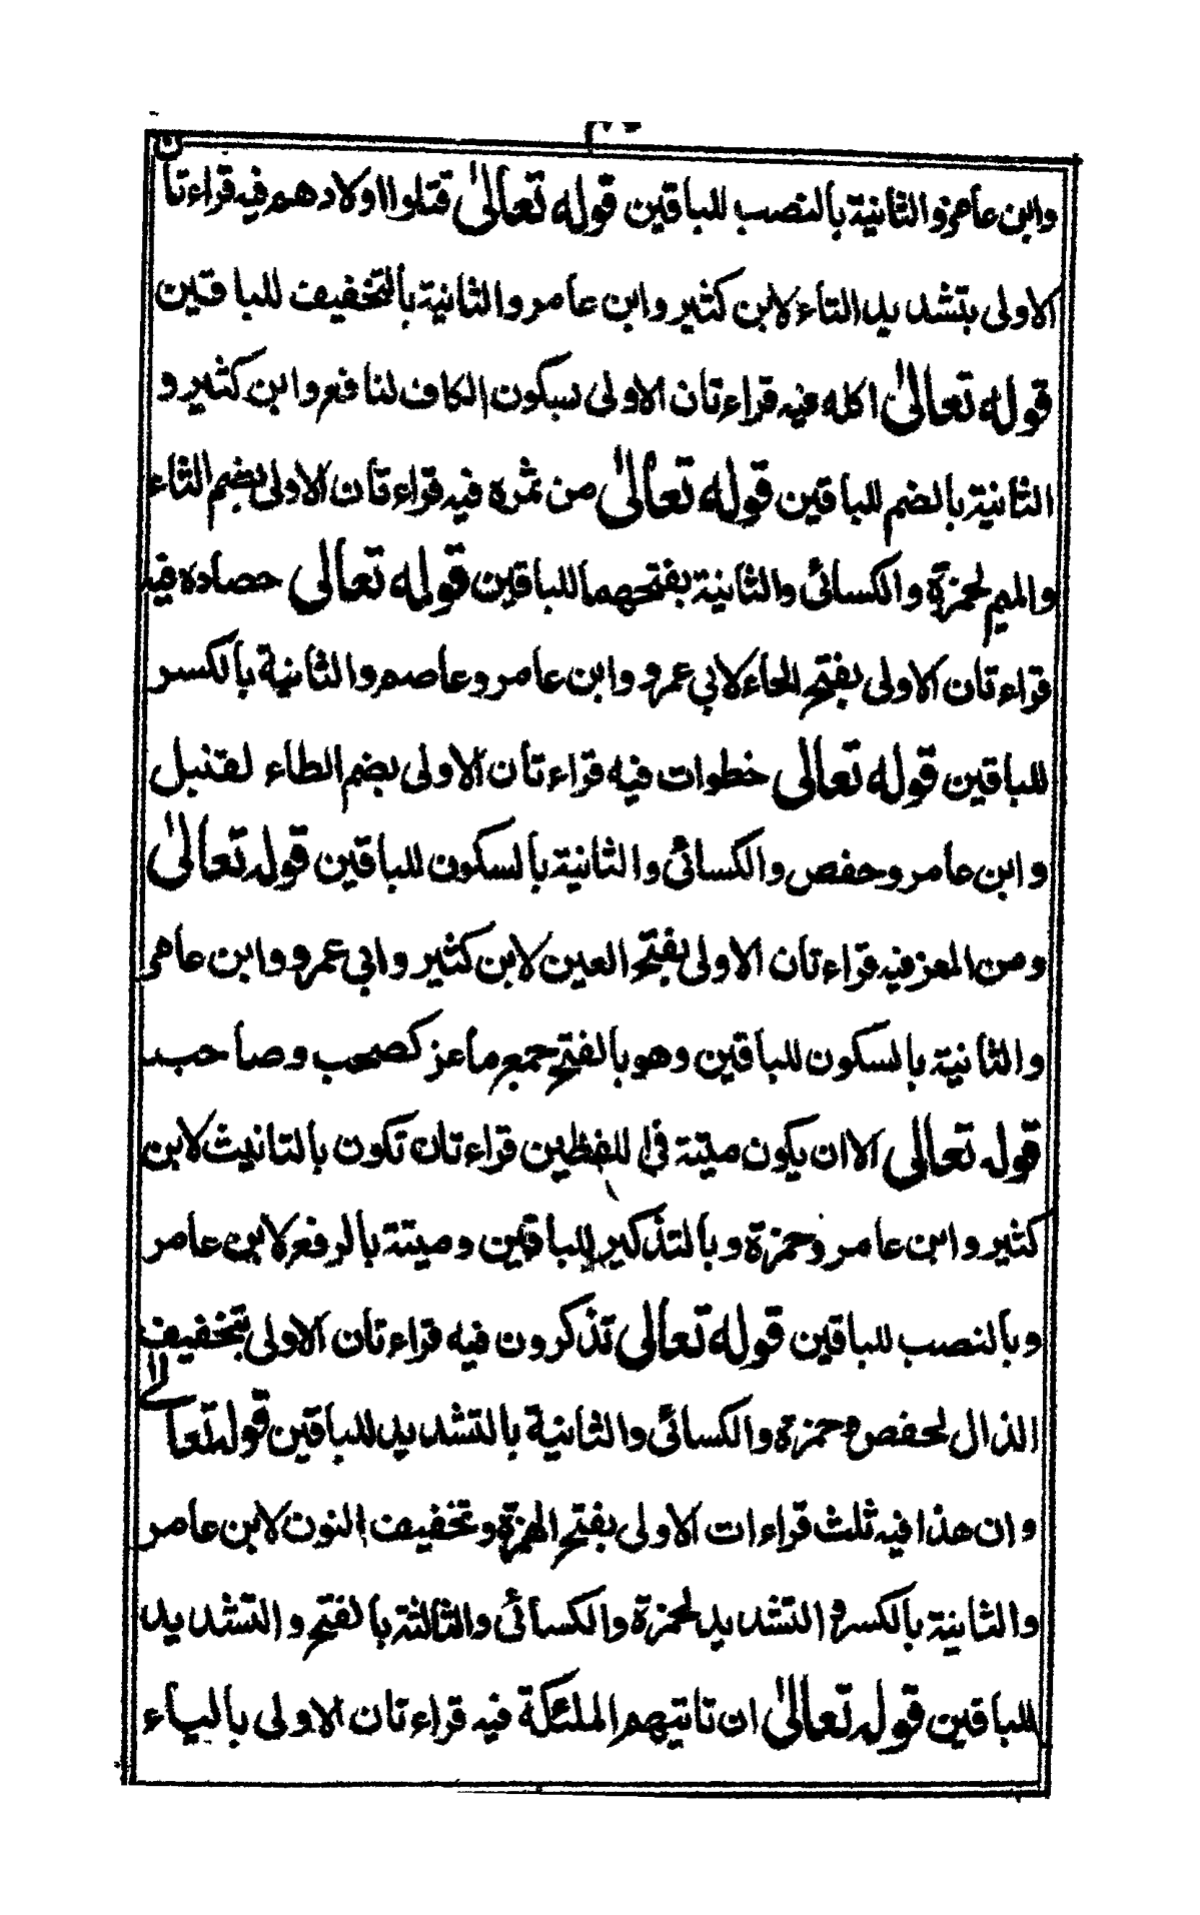 وابن عامر والثانية بالنصب للباقين قوله تعالىٰ قتلوا اولادهم فيه قراءتان
الاولى بتشديد التاء لابن كثير وابن عامر والثانية بالتخفيف للباقين
قوله تعالىٰ اكله فيه قراءتان الاولى بسكون الكاف لنافع وابن كثير و
الثانية بالضم للباقين قوله تعالىٰ من ثمره فيه قراءتان الاولى بضم الثاء
والميم لحمزة والكسائى والثانية بفتحهما للباقين قوله تعالى حصاده فيه
قراءتان الاولى بفتح الحاء لابي عمرو وابن عامر وعاصم والثانية بالكسر
للباقين قوله تعالى خطوات فيه قراءتان الاولى بضم الطاء لقنبل
وابن عامر وحفص والكسائى والثانية بالسكون للباقين قوله تعالىٰ
ومن المعز فيه قراءتان الاولى بفتح العين لابن كثير وابي عمرو وابن عامر
والثانية بالسكون للباقين وهو بالفتح جمع ماعز كصحب وصاحب
قوله تعالى الا ان يكون ميتة في اللفظين قراءتان تكون بالتانيث لابن
كثير وابن عامر وحمزة وبالتذكير للباقين وميتة بالرفع لابن عامر
وبالنصب للباقين قوله تعالى تذكرون فيه قراءتان الاولى بتخفيف
الذال لحفص وحمزة والكسائى والثانية بالتشديد للباقين قوله تعالى
وان هذا فيه ثلث قراءات الاولى بفتح الهمزة وتخفيف النون لابن عامر
والثانية بالكسر والتشديد لحمزة والكسائى والثالثة بالفتح والتشديد
للباقين قوله تعالىٰ ان تاتيهم الملئكة فيه قراءتان الاولى بالياء